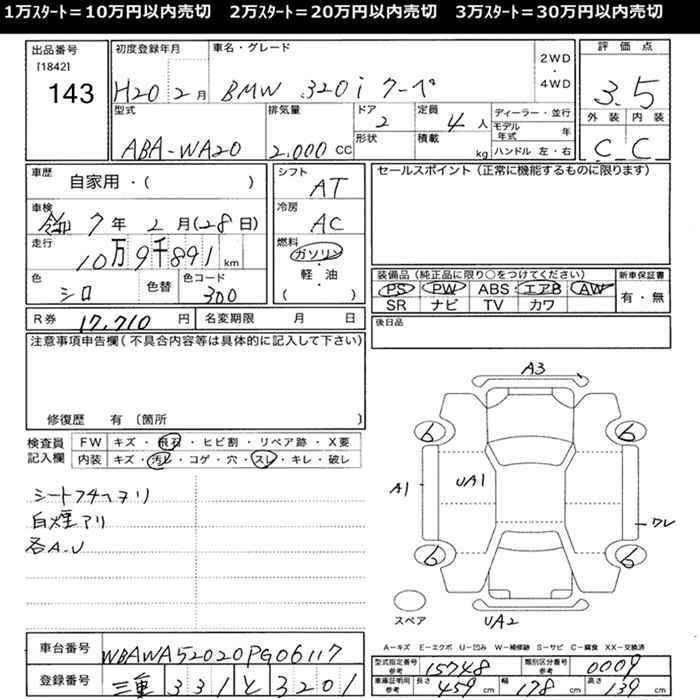 1万スタート＝10万円以内売切　2万スタート＝20万円以内売切　3万スタート＝30万円以内売切
出品番号
[1842]
143
初度登録年月
H20 2月
車名・グレード
BMW 320i クーペ
2WD
・
4WD
評価点
3.5
外装 内装
C C
型式
ABA-WA20
排気量
2.000 CC
ドア
2
形状
定員
4 人
積載
kg
ディーラー・並行
モデル年式 年
ハンドル 左・右
車歴
自家用・(　　)
車検
令和 7年 2月(28日)
走行
10万9千891 km
色
シロ
色替
色コード
300
シフト
AT
冷房
AC
燃料
ガソリン
・
軽・油
(　　)
セールスポイント（正常に機能するものに限ります）
装備品（純正品に限り○をつけてください）
PS PW ABS エアB AW
SR ナビ TV カワ
新車保証書
有・無
R券 17,710 円 名変期限 月 日
後日品
注意事項申告欄（不具合内容等は具体的に記入して下さい）
修復歴 有〔箇所　　〕
検査員
記入欄
FW キズ・飛石・ヒビ割・リペア跡・X要
内装 キズ・汚レ・コゲ・穴・スレ・キレ・破レ
白煙アリ
各A.U
A3
6 6
A1
UA1
ワレ
6 6
スペア
UA2
A－キズ E－エクボ U－凹み W－補修跡 S－サビ C－腐食 XX－交換済
車台番号 WBAWA52020PG06117
登録番号 三重 331 と 3201
型式指定番号 参考 15748 類別区分番号 参考 0009
車庫証明用 参考 長さ 459 cm 幅 178 cm 高さ 139 cm